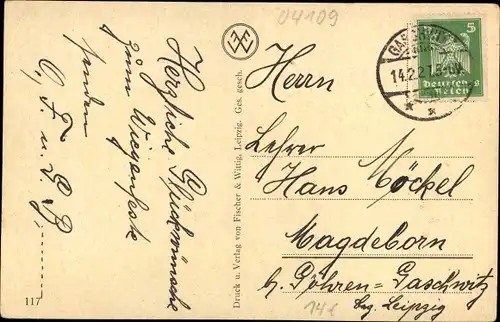 04109
Herzliche Glückwünsche
zum Wiegenfeste
senden
O. F. u.
117
Druck u. Verlag von Fischer & Wittig, Leipzig. Ges. gesch.
14.2.27
5
Deutsches
Reich
Herrn
Lehrer
Hans Möckel
Magdeborn
b. Göhren-Gaschwitz
Bez. Leipzig
14€